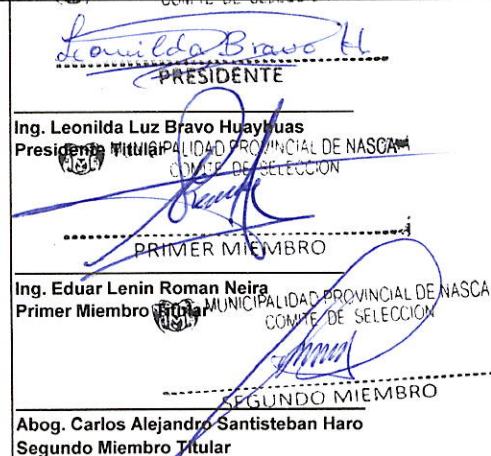 COMITE DE SELECCION
Leonilda Bravo H
PRESIDENTE
Ing. Leonilda Luz Bravo Huayhuas
Presidente Titular
MUNICIPALIDAD PROVINCIAL DE NASCA
COMITE DE SELECCION
PRIMER MIEMBRO
Ing. Eduar Lenin Roman Neira
Primer Miembro Titular
MUNICIPALIDAD PROVINCIAL DE NASCA
COMITE DE SELECCION
SEGUNDO MIEMBRO
Abog. Carlos Alejandro Santisteban Haro
Segundo Miembro Titular